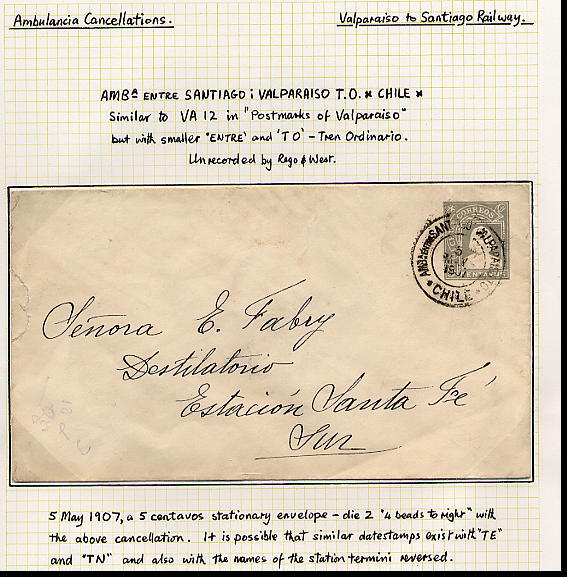 Ambulancia Cancellations. Valparaiso to Santiago Railway.
AMBª ENTRE SANTIAGO i VALPARAISO T.O. * CHILE *
Similar to VA 12 in "Postmarks of Valparaiso"
but with smaller 'ENTRE' and 'TO' - Tren Ordinario.
Unrecorded by Rego & West.
CORREOS
CENTAVOS
1907
* CHILE *
Señora E. Fabry
Destilatorio
Estación Santa Fé
Sur
5 May 1907, a 5 centavos stationary envelope - die 2 "4 beads to right" with
the above cancellation. It is possible that similar datestamps exist with "TE"
and "TN" and also with the names of the station termini reversed.